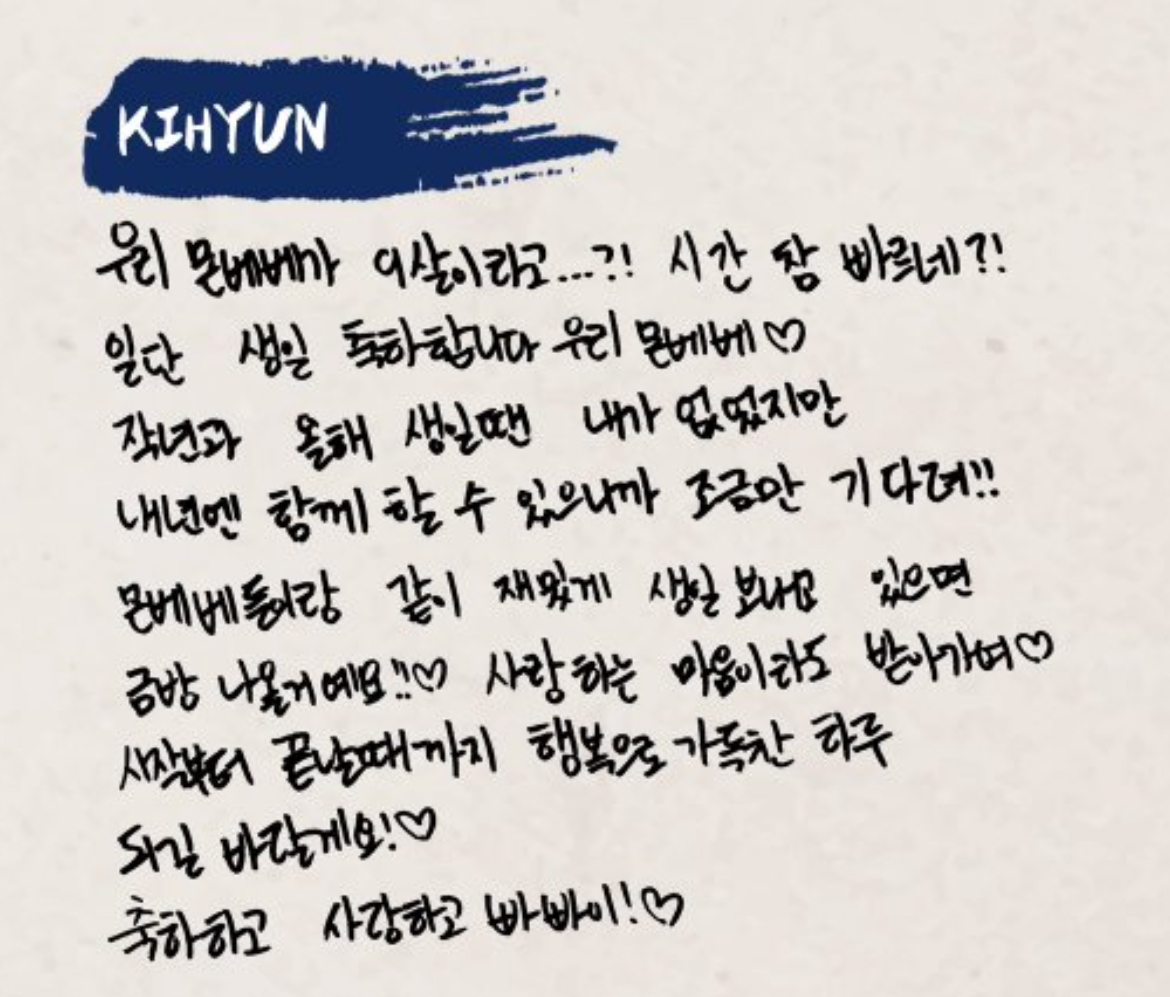 KIHYUN
우리 몬베베가 9살이라고...?! 시간 참 빠르네?!
일단 생일 축하합니다 우리 몬베베♡
작년과 올해 생일땐 내가 없었지만
내년엔 함께 할 수 있으니까 조금만 기다려!!
몬베베들이랑 같이 재밌게 생일 보내고 있으면
금방 나올거예요!!♡ 사랑하는 마음이라도 받아가여♡
시작부터 끝날때까지 행복으로 가득찬 하루
되길 바랄게요!♡
축하하고 사랑하고 빠빠이!♡